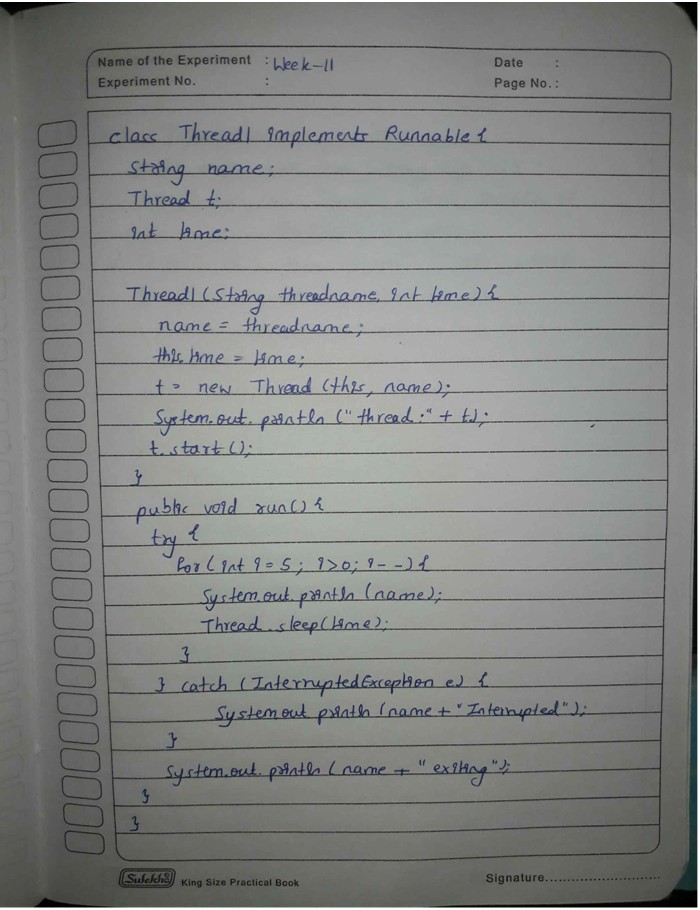 Name of the Experiment : Week-11
Date :
Experiment No. :
Page No. :
class Thread1 implements Runnable {
String name;
Thread t;
int time;
Thread1 (String threadname, int time) {
name = threadname;
this.time = time;
t = new Thread (this, name);
System.out.println ("thread:" + t);
t.start ();
}
public void run() {
try {
for (int i = 5; i>0; i--) {
System.out.println (name);
Thread.sleep(time);
}
} catch (InterruptedException e) {
System out println (name + "Interrupted");
}
System.out.println (name + "exiting");
}
}
Sulekha King Size Practical Book
Signature